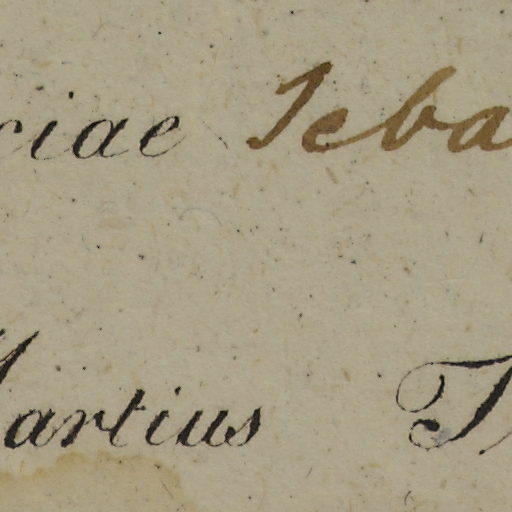 ciae Seba
Martius T